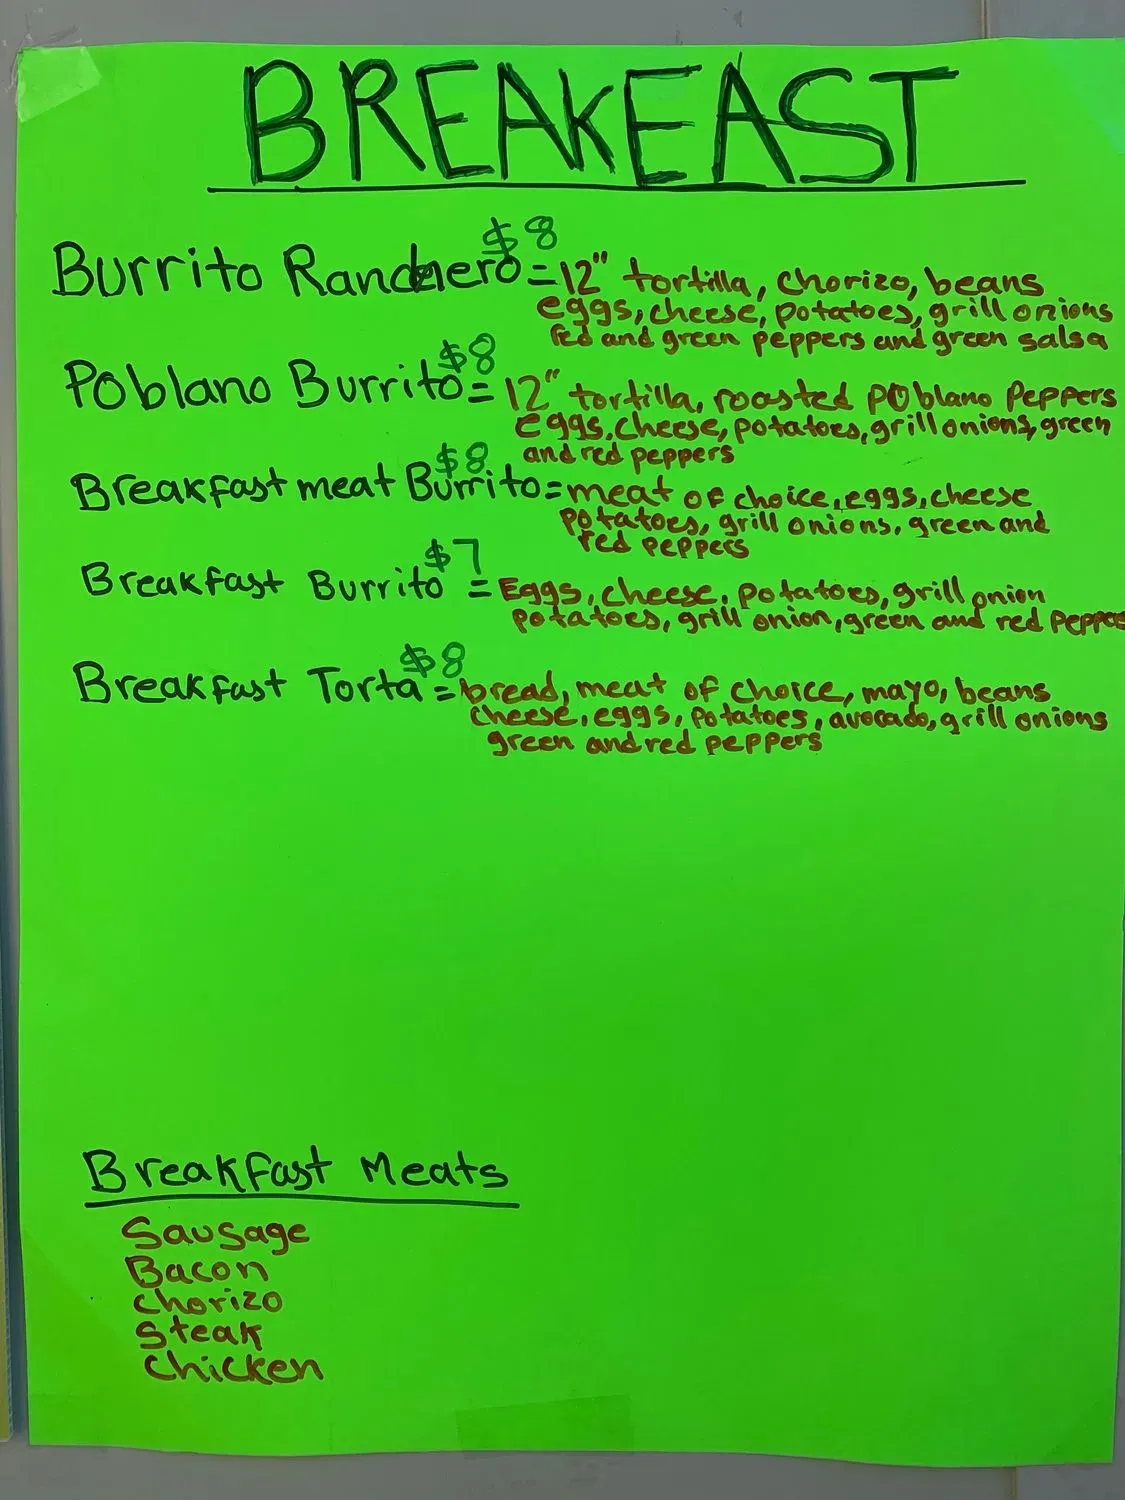 BREAKFAST
$8
Burrito Ranchero = 12" tortilla, chorizo, beans
eggs, cheese, potatoes, grill onions
red and green peppers and green salsa
$8
Poblano Burrito = 12" tortilla, roasted poblano Peppers
eggs, cheese, potatoes, grill onions, green
and red peppers
$8
Breakfast meat Burrito = meat of choice, eggs, cheese
potatoes, grill onions, green and
red peppers
$7
Breakfast Burrito = Eggs, cheese, potatoes, grill onion
potatoes, grill onion, green and red Peppers
$8
Breakfast Torta = bread, meat of choice, mayo, beans
cheese, eggs, potatoes, avocado, grill onions
green and red peppers
Breakfast Meats
Sausage
Bacon
chorizo
Steak
Chicken